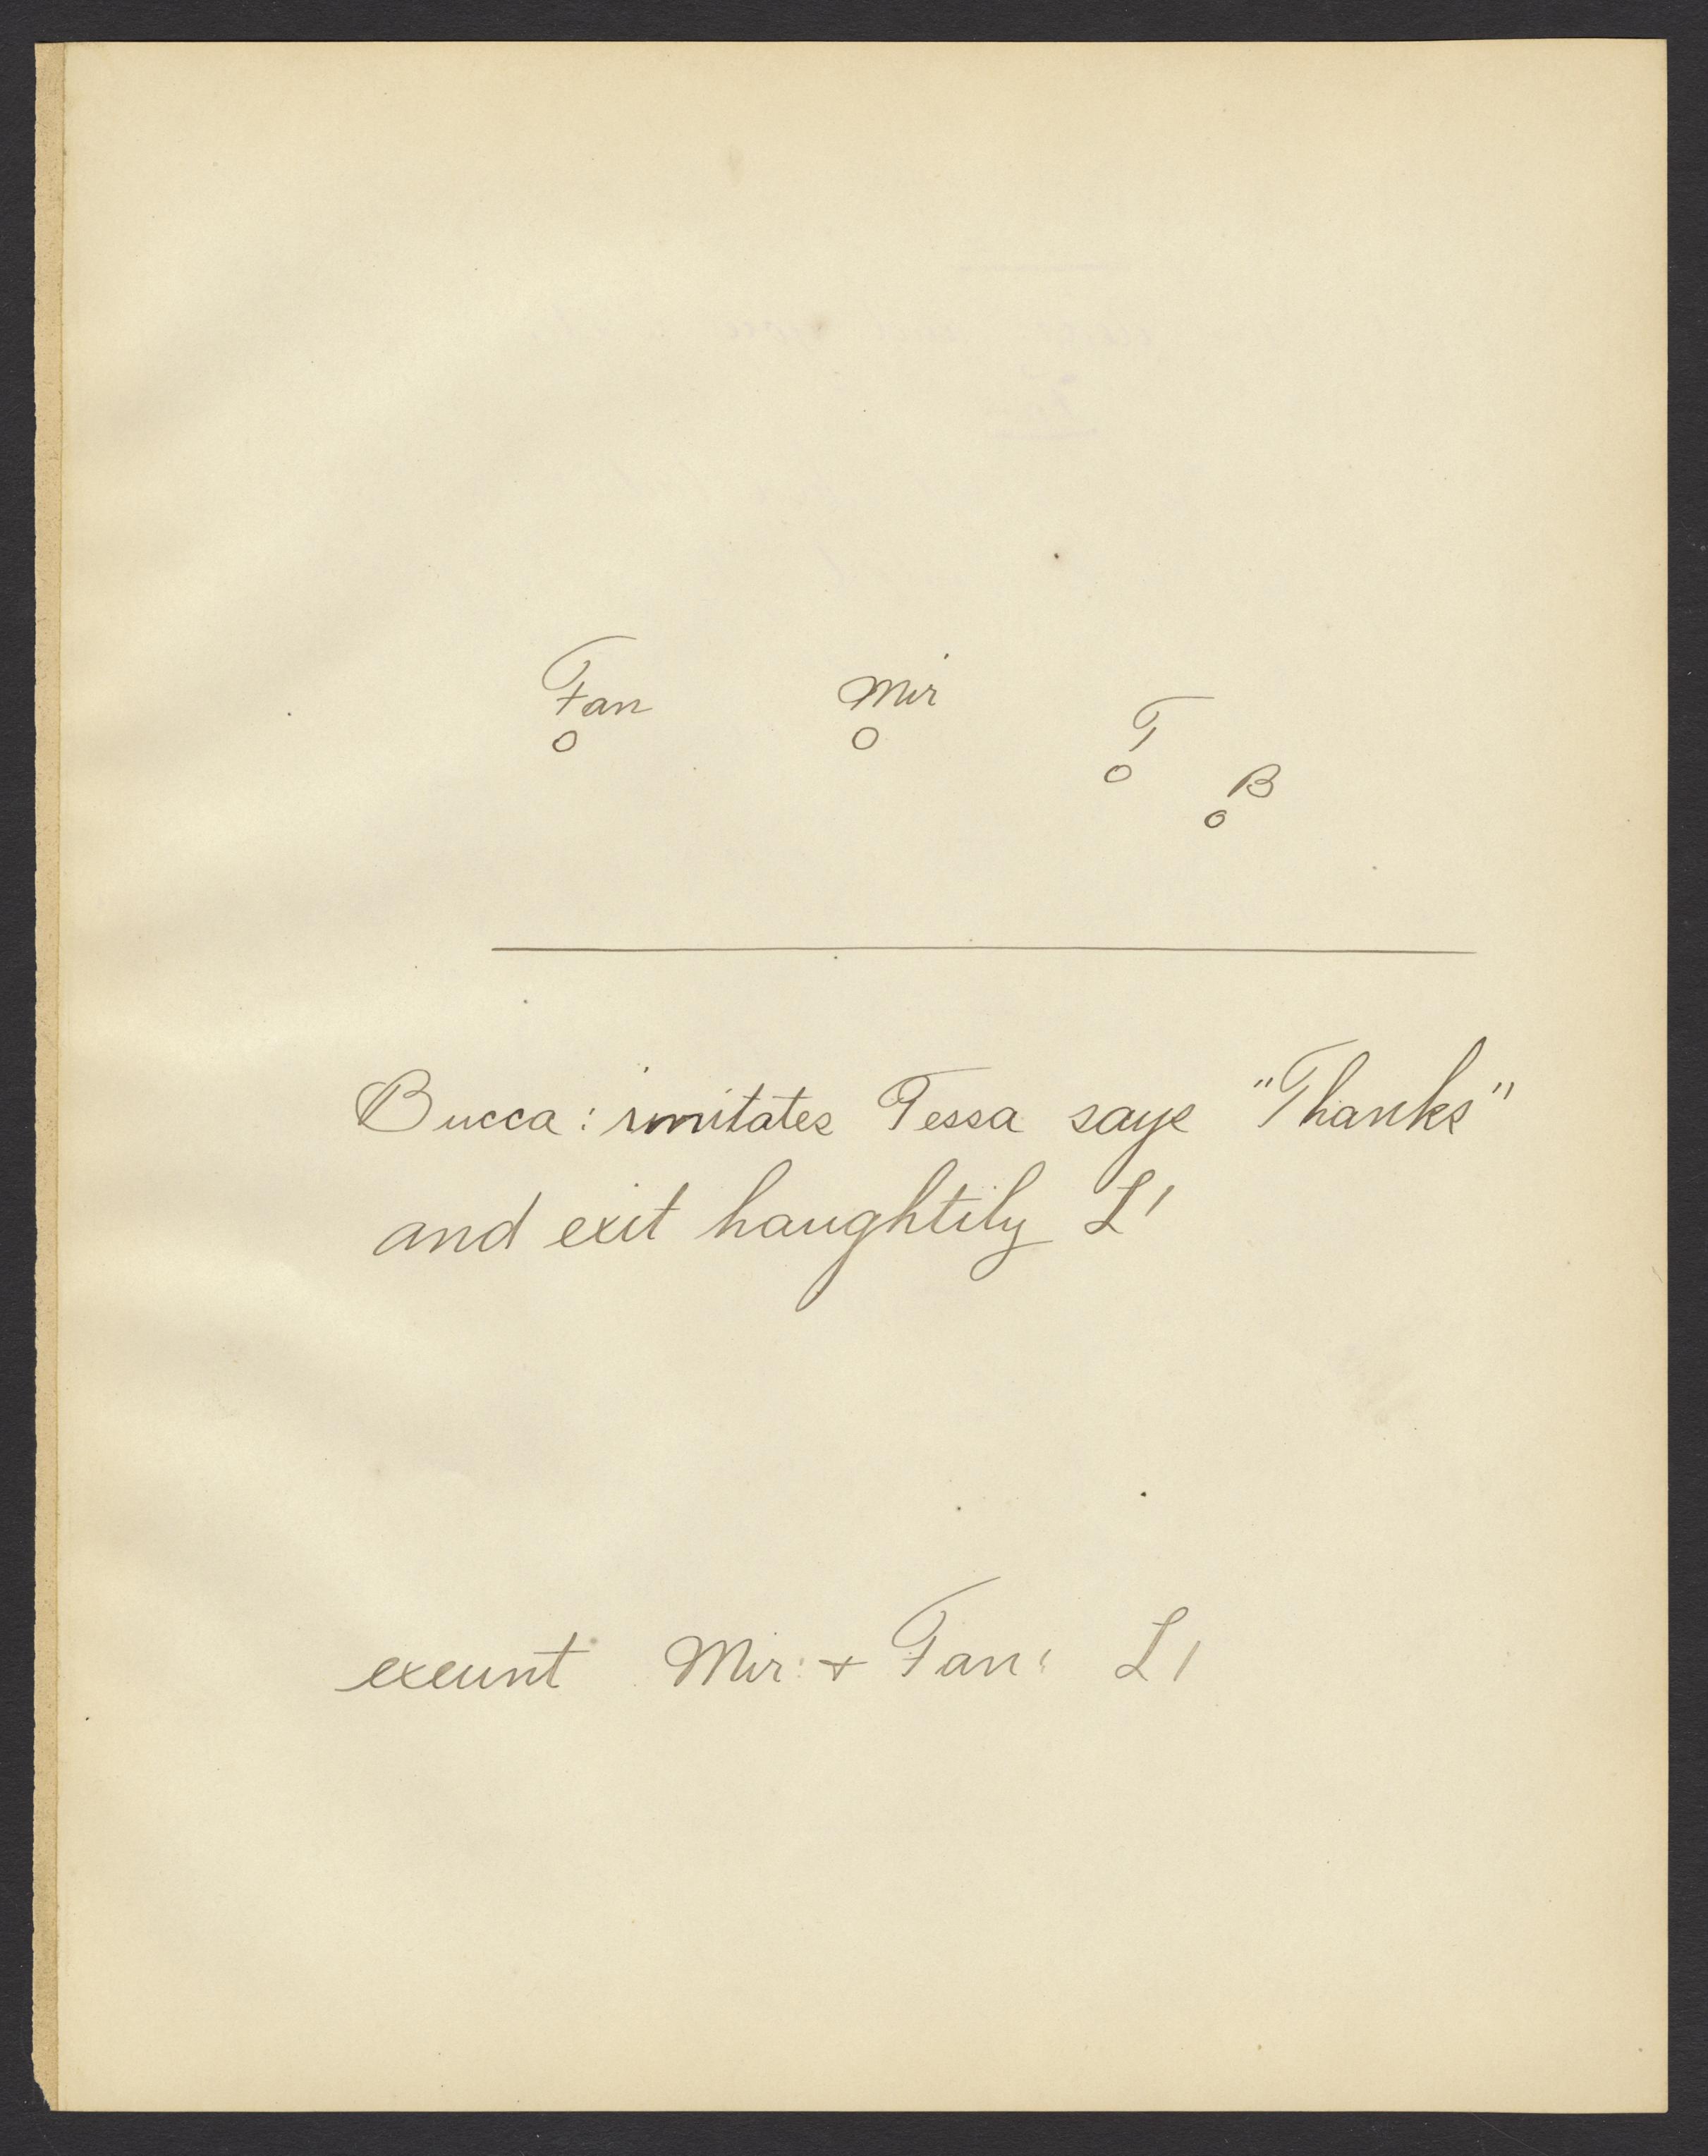 Fan Mir
T
B
Bucca: imitates Tessa says "Thanks"
and exit haughtily L1
exeunt Mir: + Fan: L1